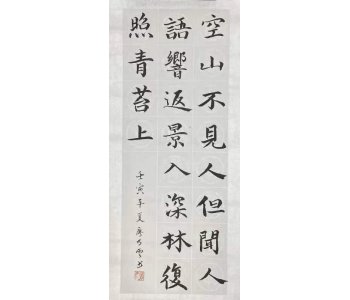 空山不見人但聞人
語響返景入深林復
照青苔上
壬寅年夏